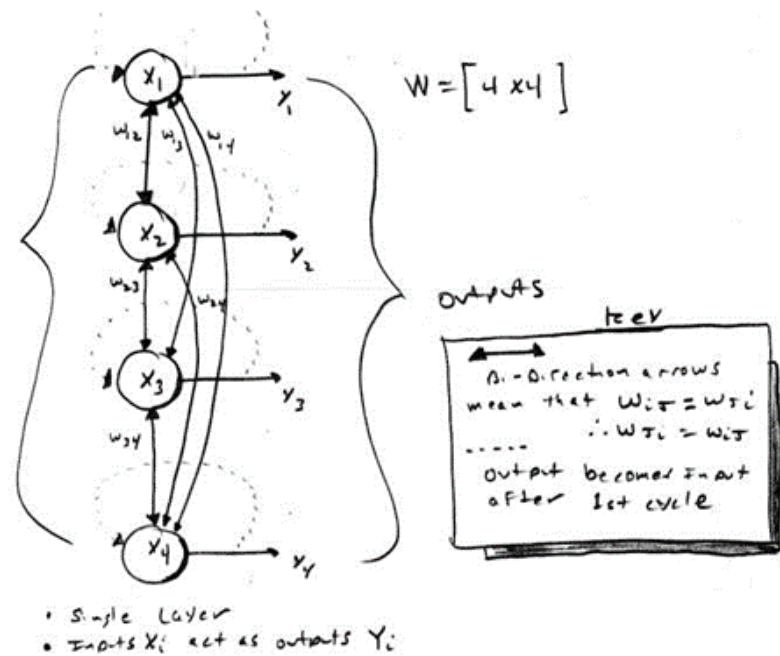 X1
Y1
W = [ 4 x 4 ]
W12
W13
W14
X2
Y2
W23
W24
outputs
Key
X3
Y3
Bi-Direction arrows
mean that Wij = Wji
∴ Wji = Wij
W34
output becomes Input
after 1st cycle
X4
Y4
• Single Layer
• Inputs Xi act as outputs Yi